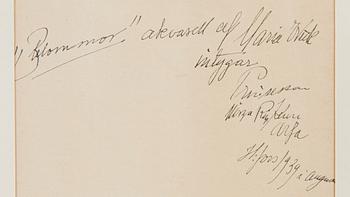 "Blommor." akvarell af Maria Wiik
intygar
Prinsessan
Mirza Riza Khan
Arfa
H:fors 1939 i augusti